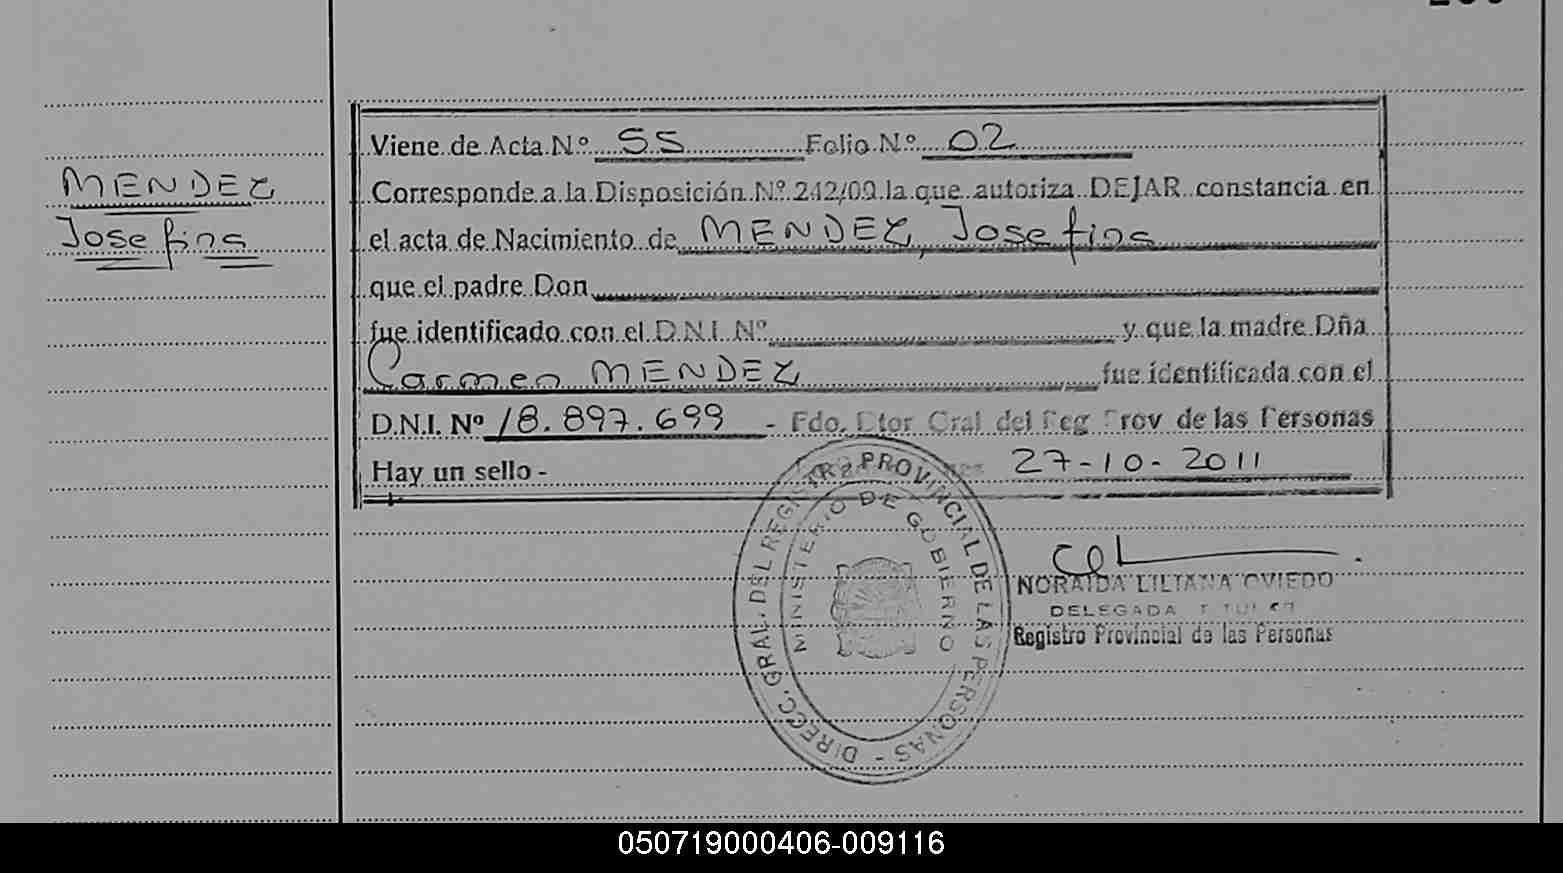 MENDEZ
Josefina
Viene de Acta Nº 55 Folio Nº 02
Corresponde a la Disposición Nº 242/09 la que autoriza DEJAR constancia en
el acta de Nacimiento de MENDEZ, Josefina
que el padre Don
fue identificado con el D.N.I. Nº y que la madre Dña
Carmen MENDEZ fue identificada con el
D.N.I. Nº 18.897.699 - Fdo. Dtor Gral del Reg Prov de las Personas
Hay un sello - 27-10-2011
DIRECC. GRAL. DEL REGISTRO PROVINCIAL DE LAS PERSONAS -
MINISTERIO DE GOBIERNO
NORAIDA LILIANA OVIEDO
DELEGADA TITULAR
Registro Provincial de las Personas
050719000406-009116